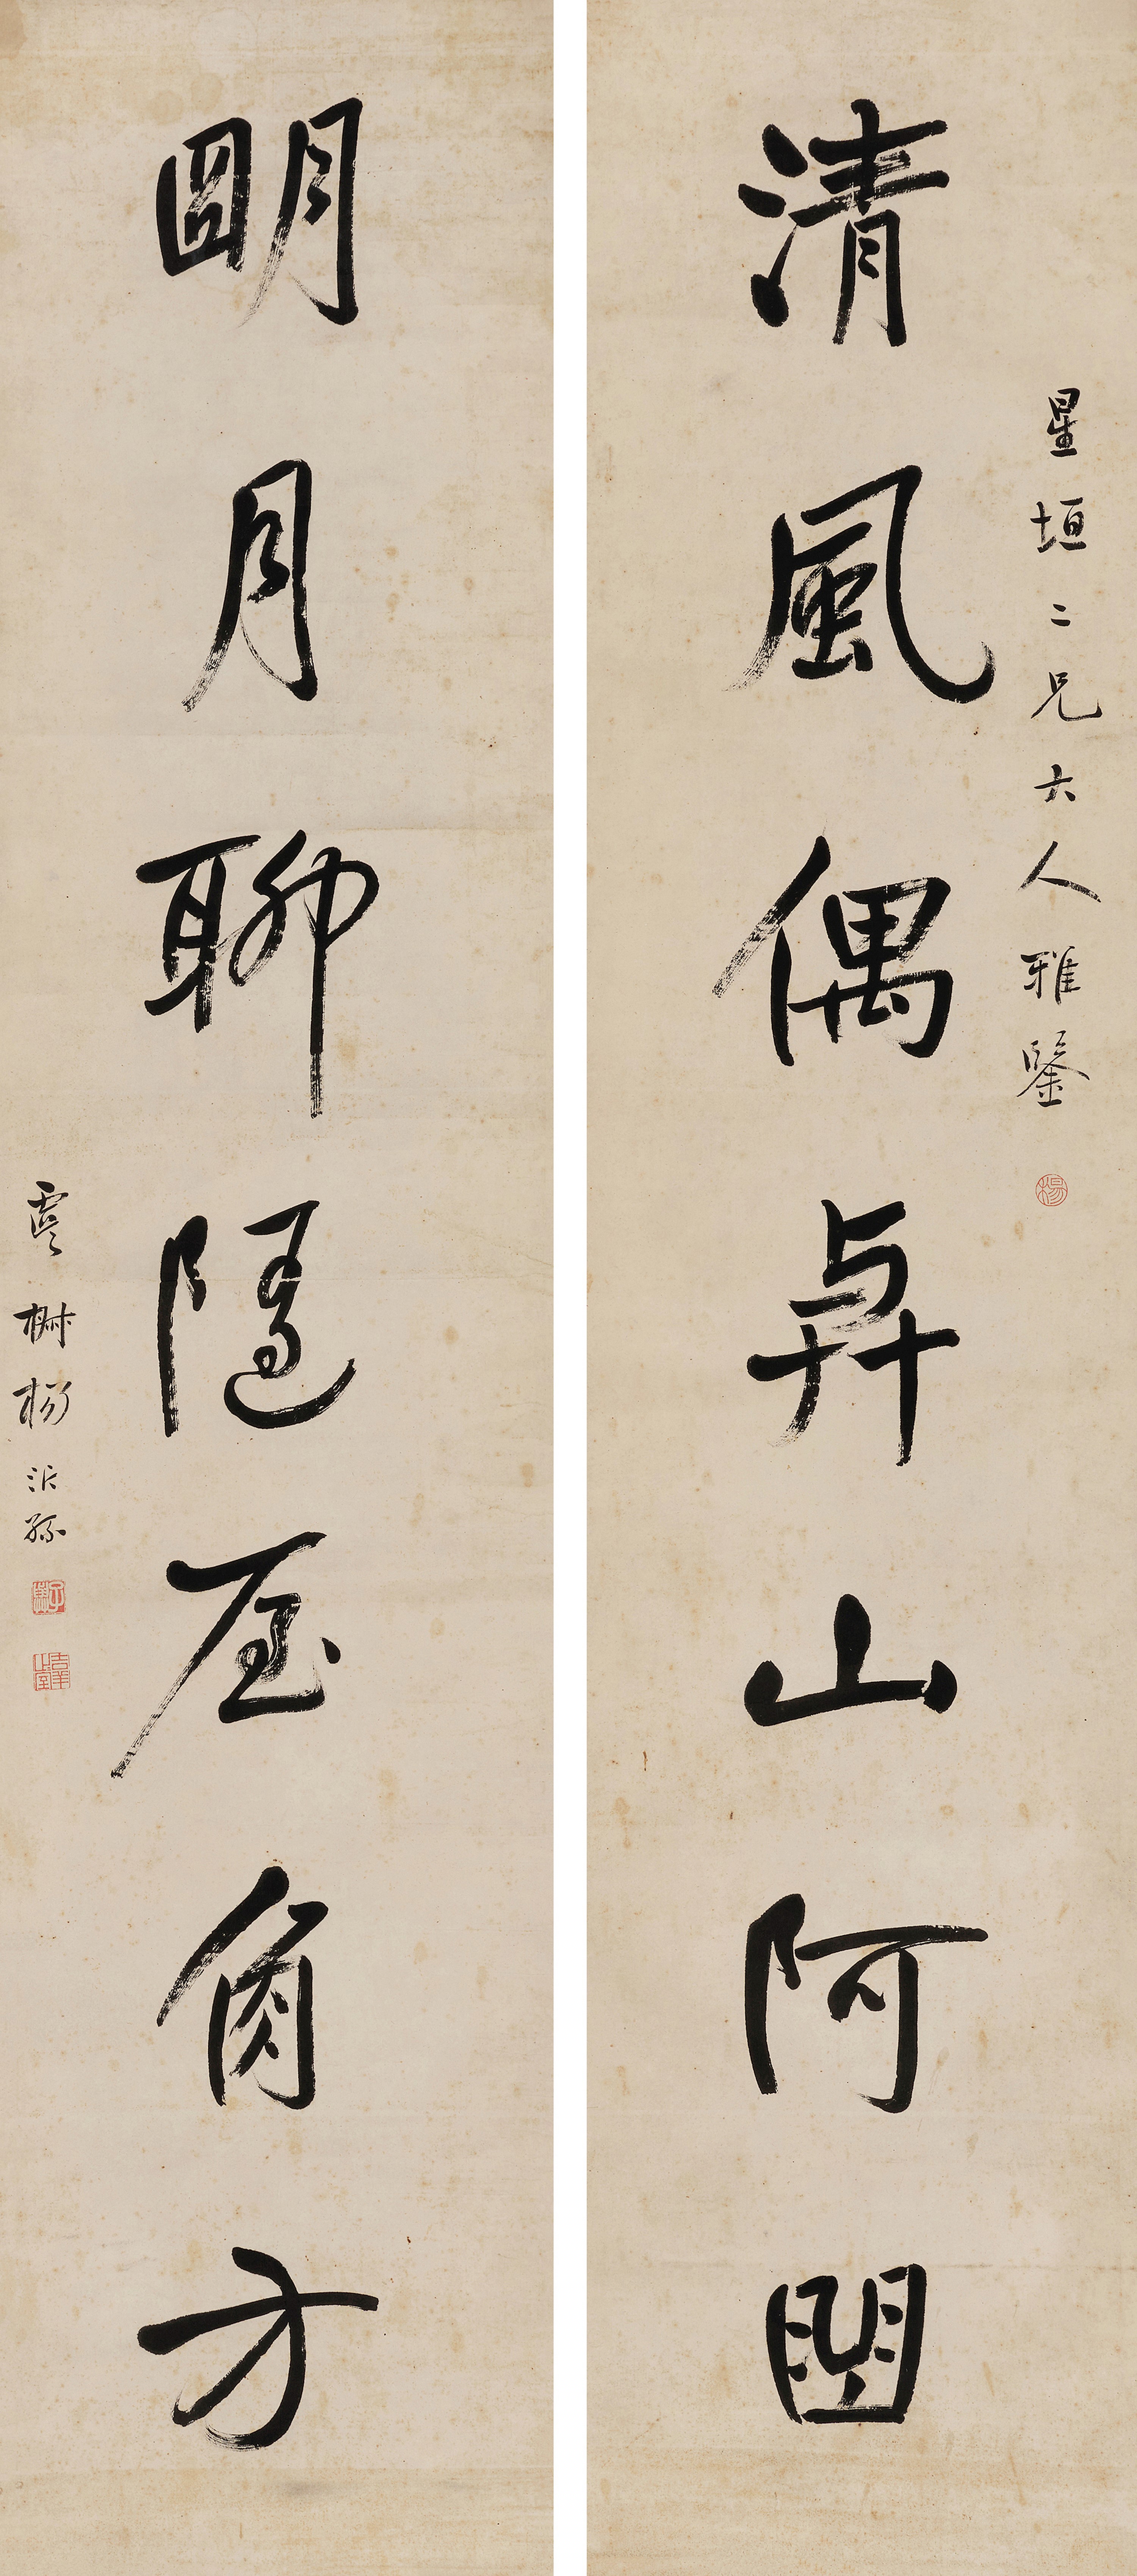 清風偶與山阿曲
星垣二兄大人雅鑒
楊
朙月聊隨屋角方
虞楊沂孫